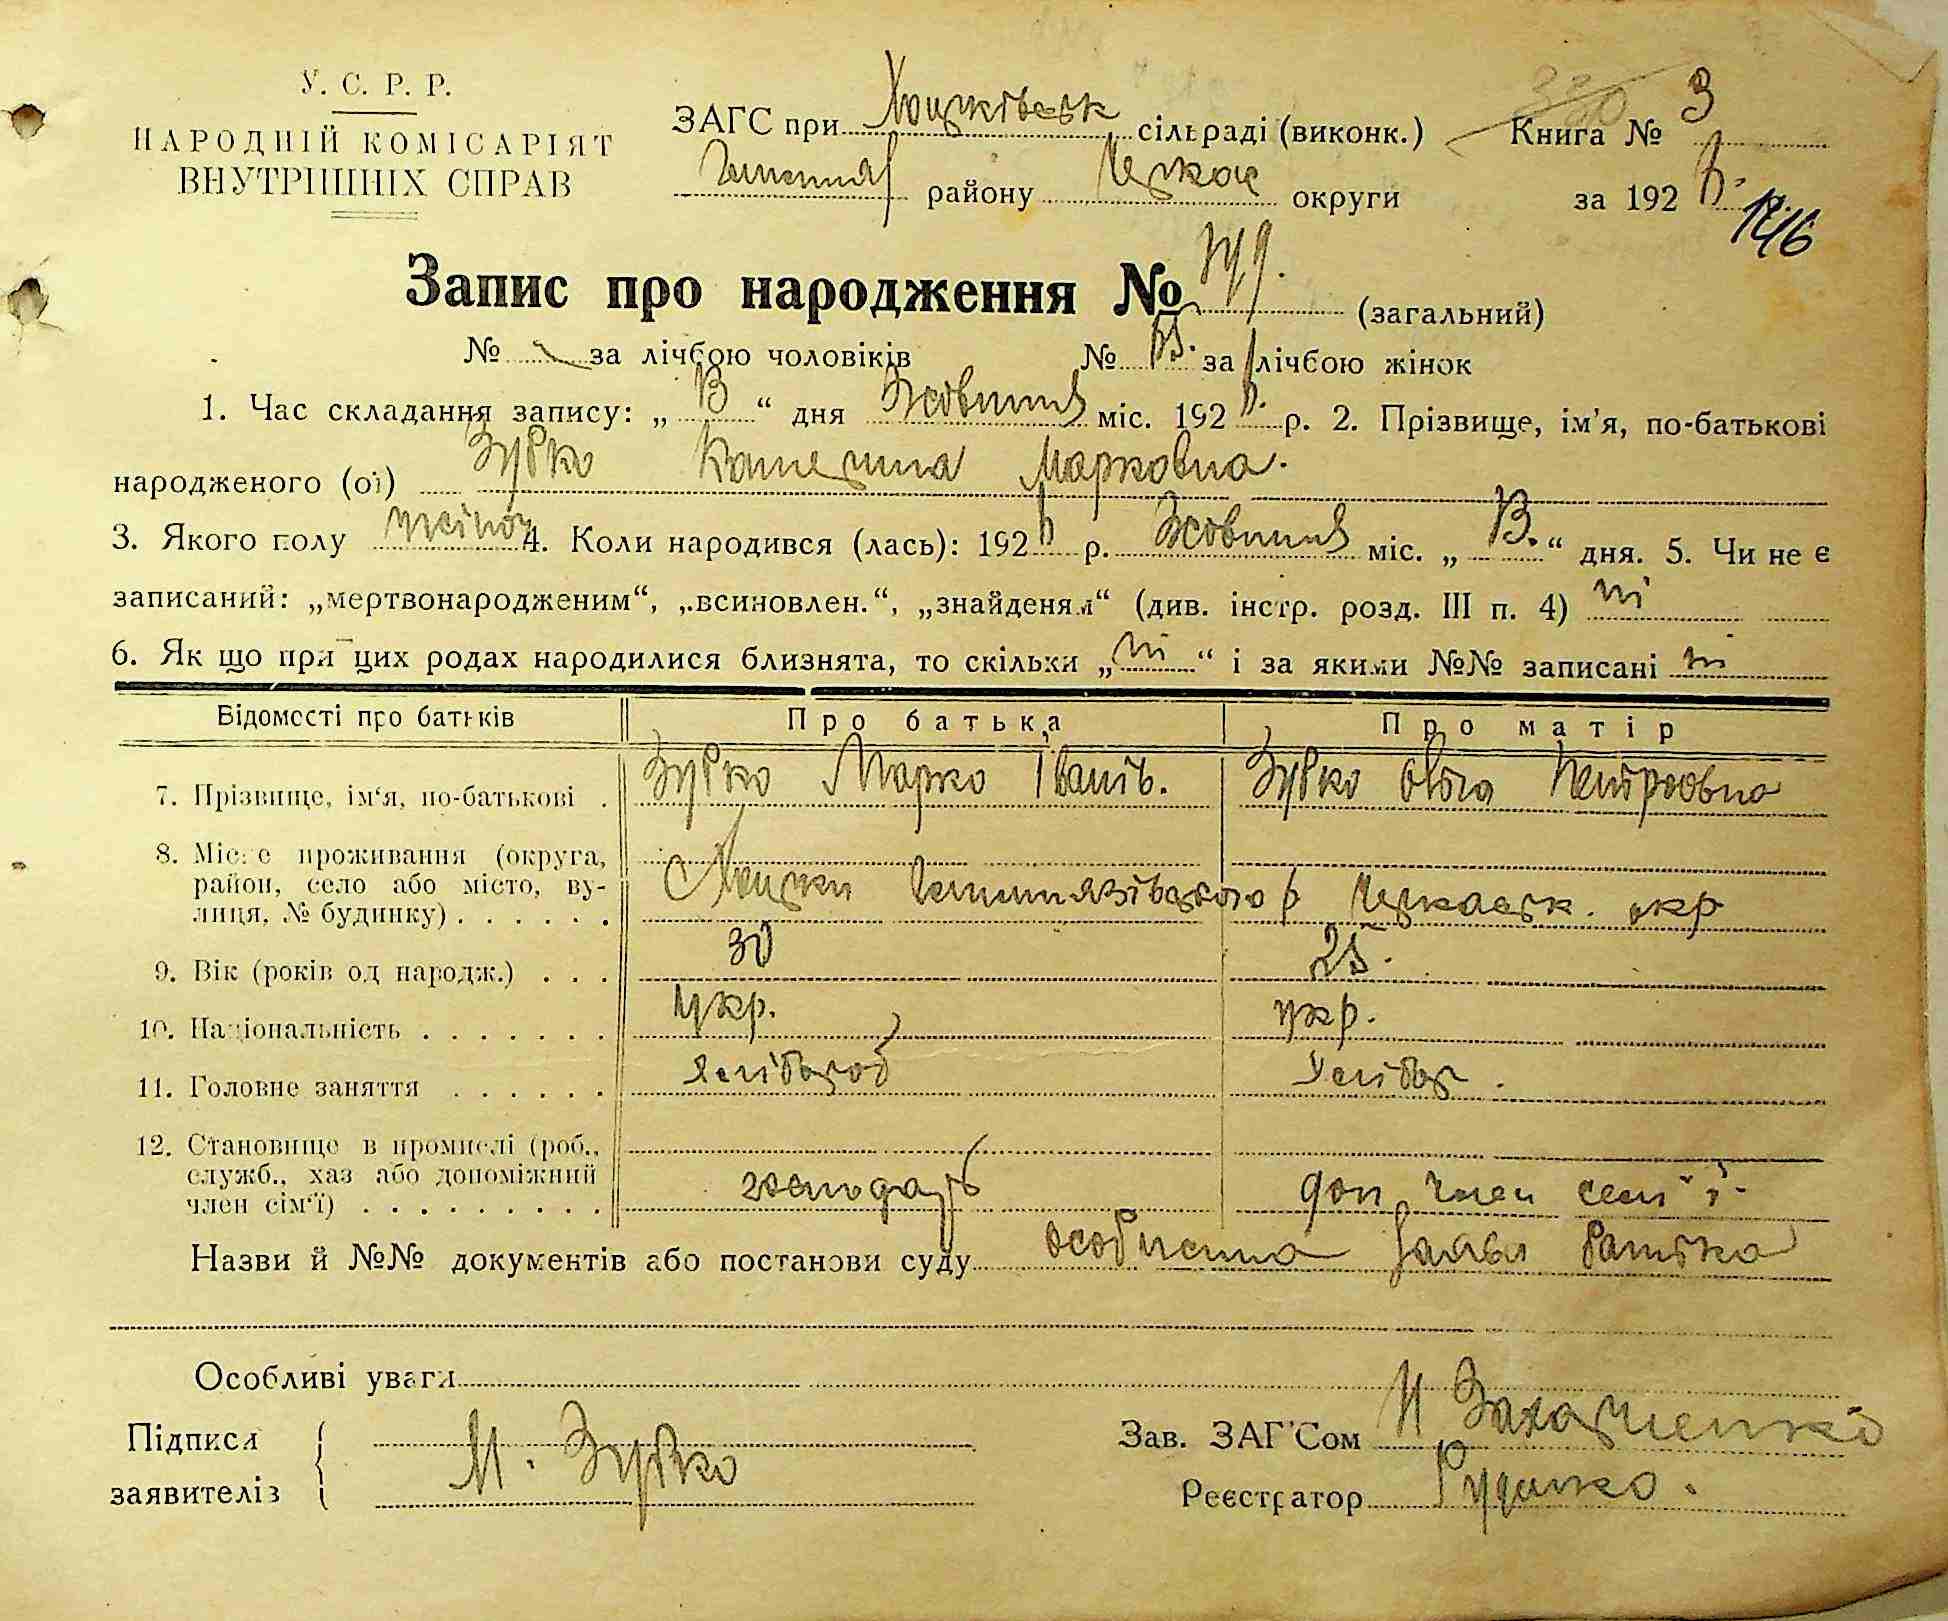 У. С. Р. Р.
НАРОДНІЙ КОМІСАРІЯТ
ВНУТРІШНІХ СПРАВ
ЗАГС при Хоцківськ сільраді (виконк.)
району Черкас округи
Книга № 3
за 192
Запис про народження № (загальний)
№ за лічбою чоловіків № за лічбою жінок
1. Час складання запису: „ “ дня Жовтня міс. 192 р. 2. Прізвище, ім'я, по-батькові
народженого (ої) Зубко Катерина Марковна.
3. Якого полу жіноч 4. Коли народився (лась): 192 р. Жовтня міс. „ “ дня. 5. Чи не є
записаний: „мертвонародженим“, „всиновлен.“, „знайденям“ (див. інстр. розд. III п. 4) ні
6. Як що при цих родах народилися близнята, то скільки „ні“ і за якими №№ записані ні
Відомості про батьків Про батька Про матір
7. Прізвище, ім'я, по-батькові . Зубко Марко Іванів. Зубко Петровна
8. Місце проживання (округа, район, село або місто, вулиця, № будинку) . . . . . . с Хоцьки Гельмязівського р Черкаськ. окр
9. Вік (років од народж.) . . . 30 25.
10. Національність . . . . . . . укр. укр.
11. Головне заняття . . . . . . хлібороб хлібор.
12. Становище в промислі (роб., служб., хаз або допоміжний член сім'ї) . . . . . . . . . господарь доп. член семї.
Назви й №№ документів або постанови суду особиста заява батька
Особливі уваги
Підписи
заявителів
М. Зубко
Зав. ЗАГС'ом Н Захарченко
Реєстратор Руденко.